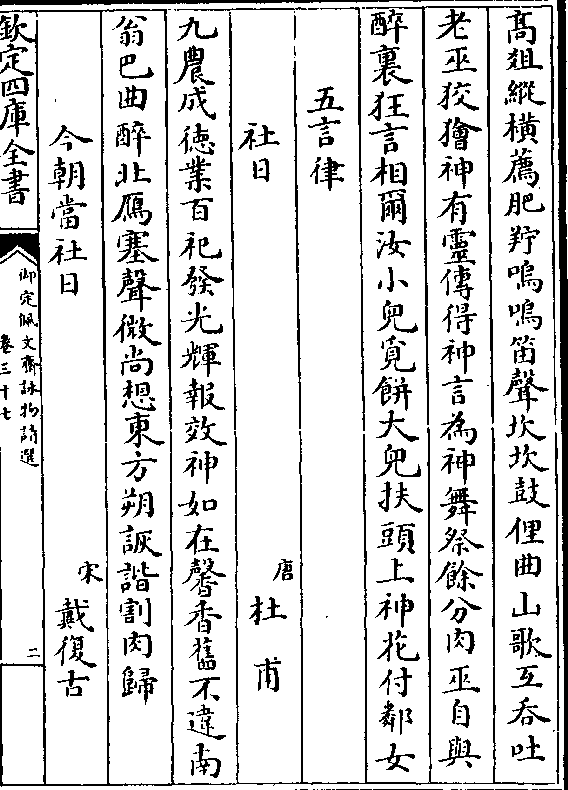 髙爼縱横薦肥羜嗚嗚笛聲坎坎鼓俚曲山歌互吞吐
老巫狡獪神有靈傳得神言為神舞祭餘分肉巫自與
醉裏狂言相爾汝小兒覔餅大兒扶頭上神花付鄰女
五言律
社日
唐 杜甫
九農成徳業百祀發光輝報效神如在馨香舊不違南
翁巴曲醉北鴈塞聲微尚想東方朔詼諧割肉歸
今朝當社日
宋 戴復古
欽定四庫全書
御定佩文齋詠物詩選
卷三十七
二